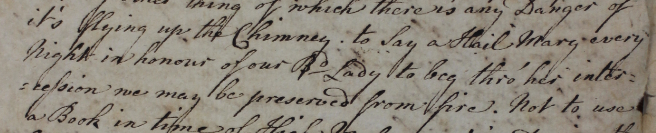 thing of which there is any Danger of
it's flying up the Chimney. to Say a Hail Mary every
Night in honour of our Bd Lady to beg thro' her inter-
=cession we may be preserved from fire. Not to use
a Book in time of